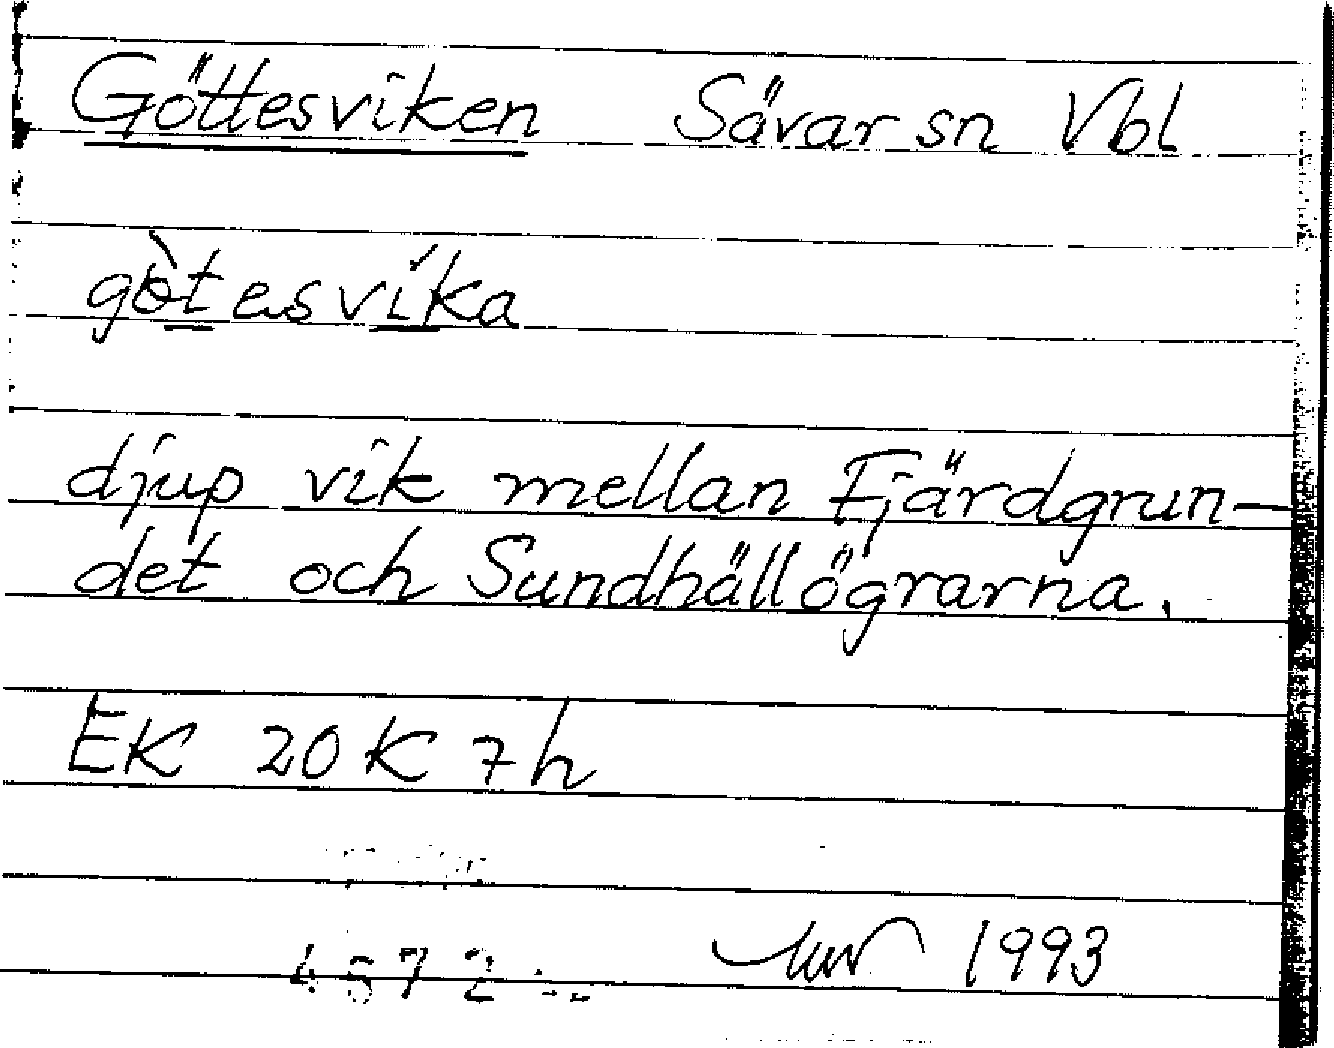 Göttesviken Sävar sn Vbl
gòtesvika
djup vik mellan Fjärdgrun-
det och Sundhällögrarna.
EK 20 K 7h
1993